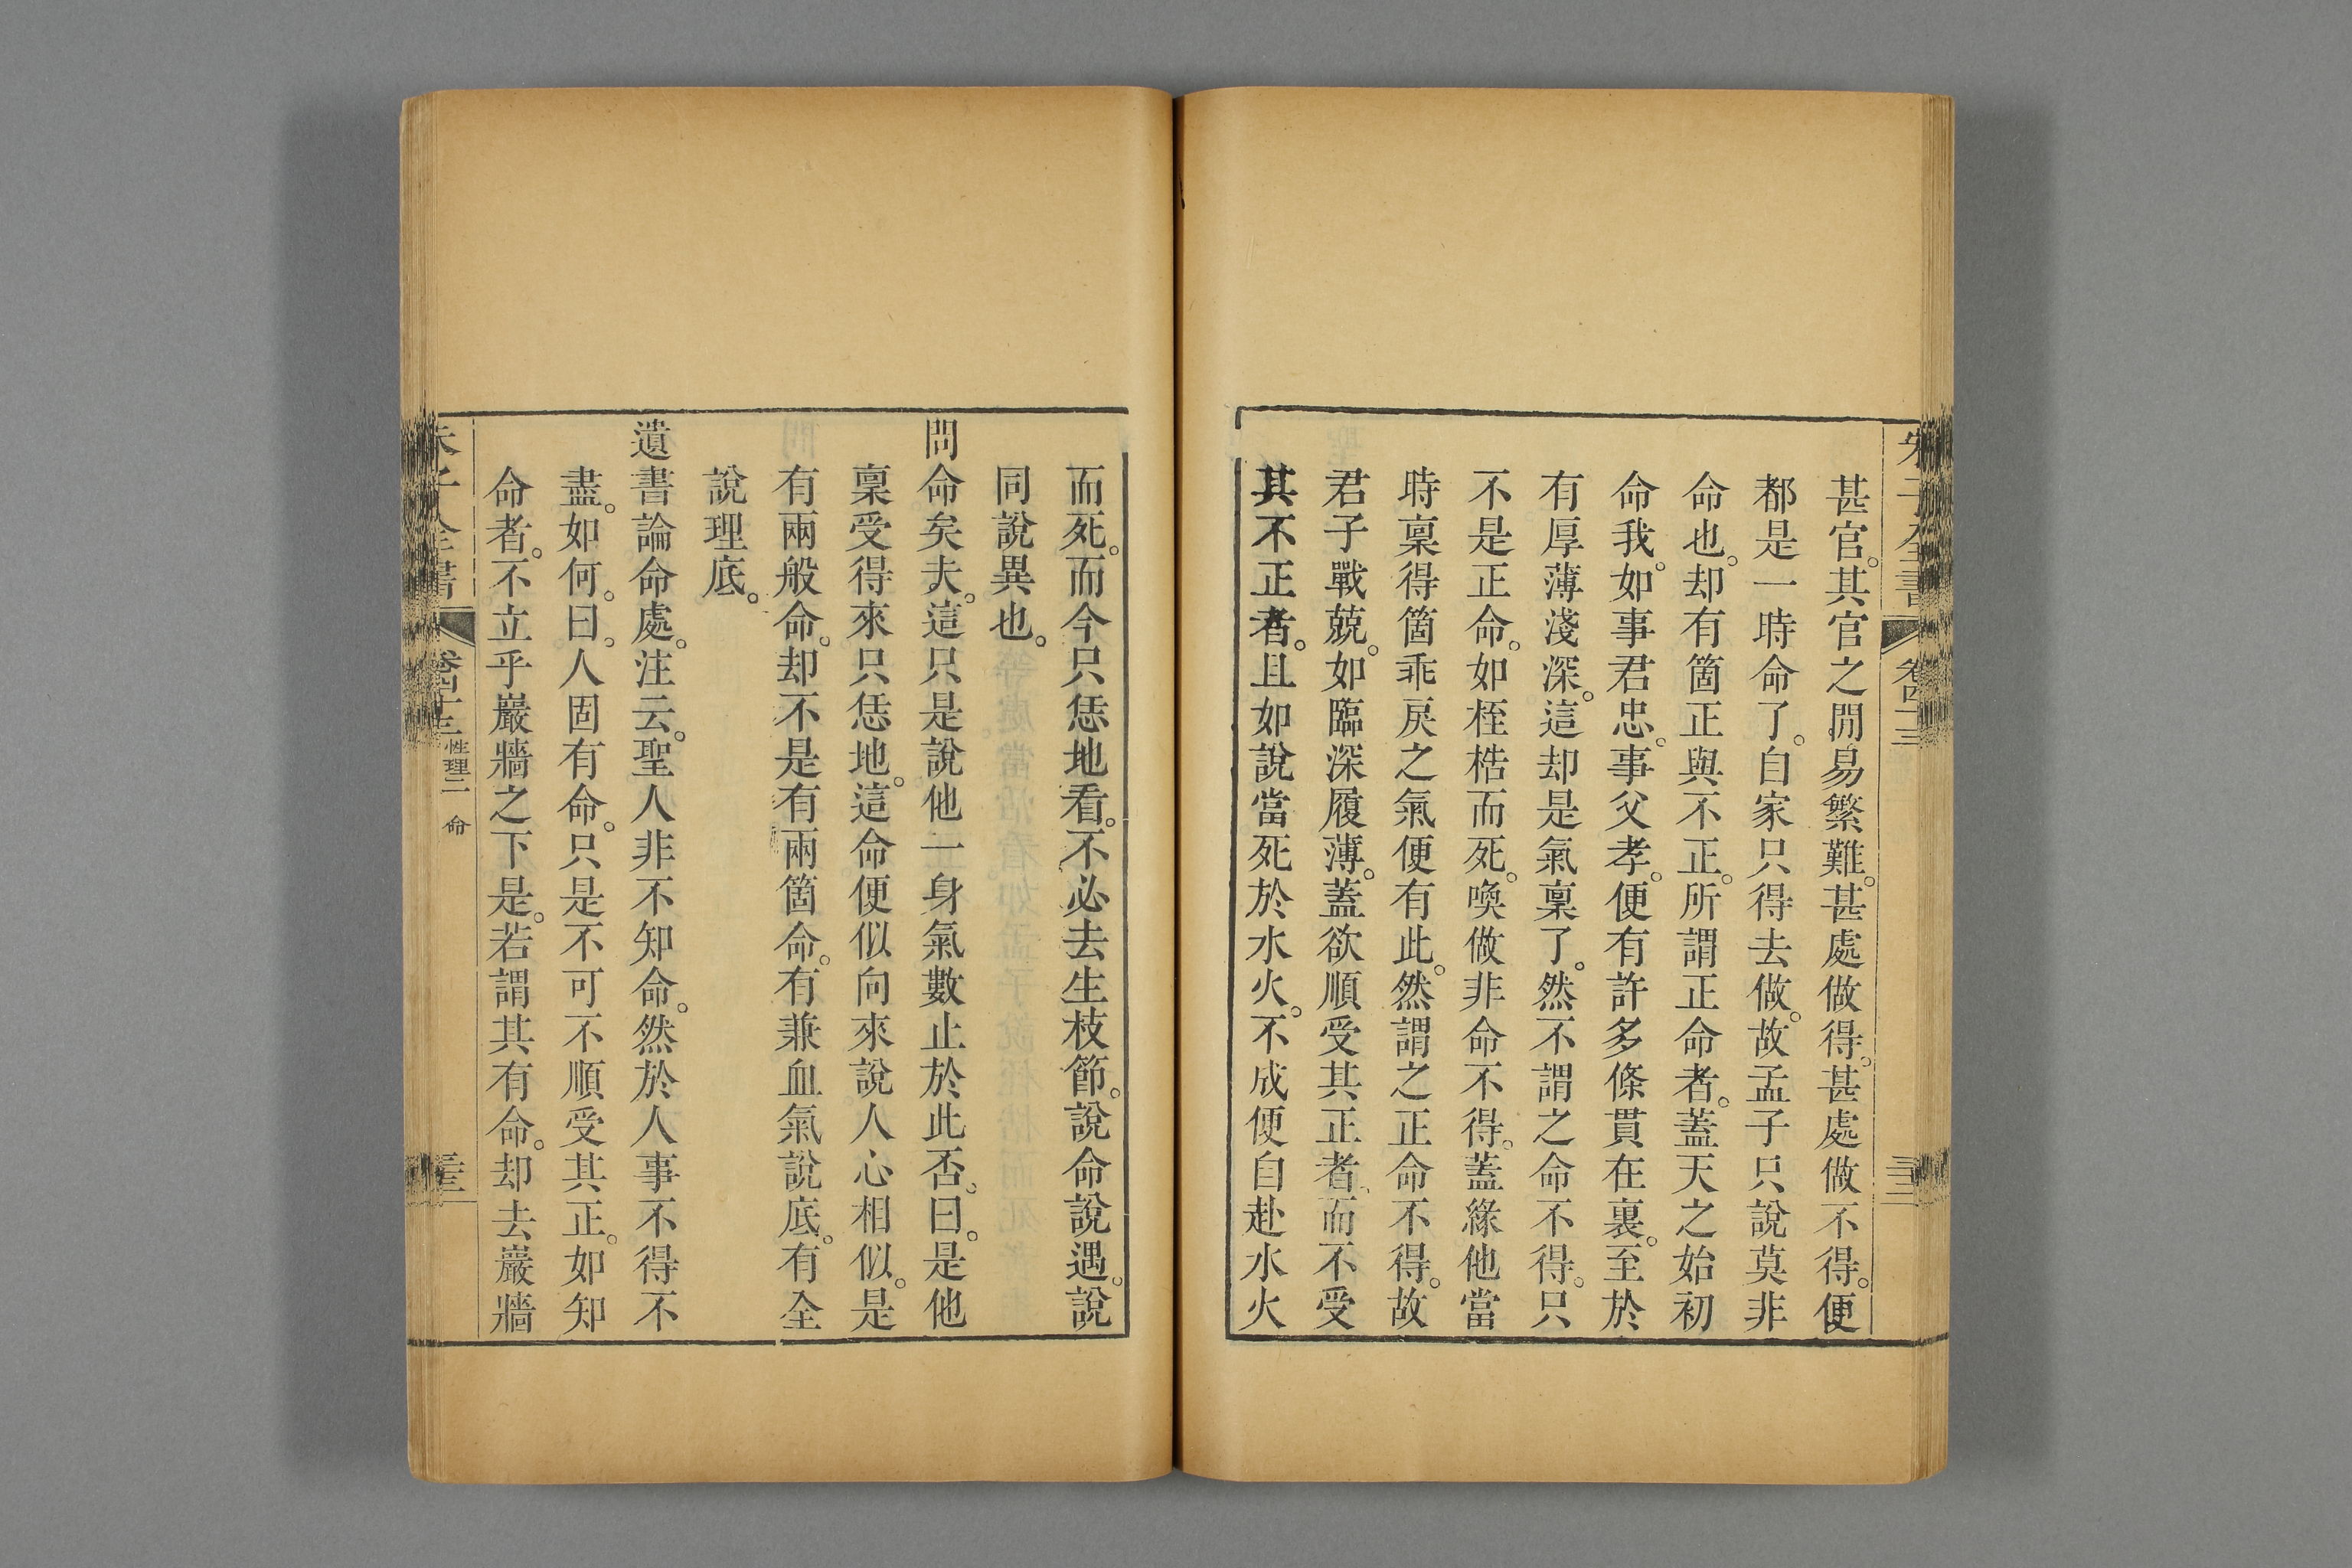 甚官。其官之閒。易繁難。甚處做得。甚處做不得。便
都是一時命了。自家只得去做。故孟子只說莫非
命也。却有箇正與不正。所謂正命者。蓋天之始初
命我。如事君忠。事父孝。便有許多條貫在裏。至於
有厚薄淺深。這却是氣稟了。然不謂之命不得。只
不是正命。如桎梏而死。喚做非命不得。蓋緣他當
時稟得箇乖戾之氣便有此。然謂之正命不得。故
君子戰兢。如臨深履薄。蓋欲順受其正者。而不受
其不正者。且如說當死於水火。不成便自赴水火
而死。而今只恁地看。不必去生枝節。說命說遇。說
同說異也。
問命矣夫。這只是說他一身氣數止於此否。曰。是他
稟受得來只恁地。這命便似向來說人心相似。是
有兩般命。却不是有兩箇命。有兼血氣說底。有全
說理底。
遺書論命處。注云。聖人非不知命。然於人事不得不
盡。如何。曰。人固有命。只是不可不順受其正。如知
命者。不立乎巖牆之下是。若謂其有命。却去巖牆
性理二 命